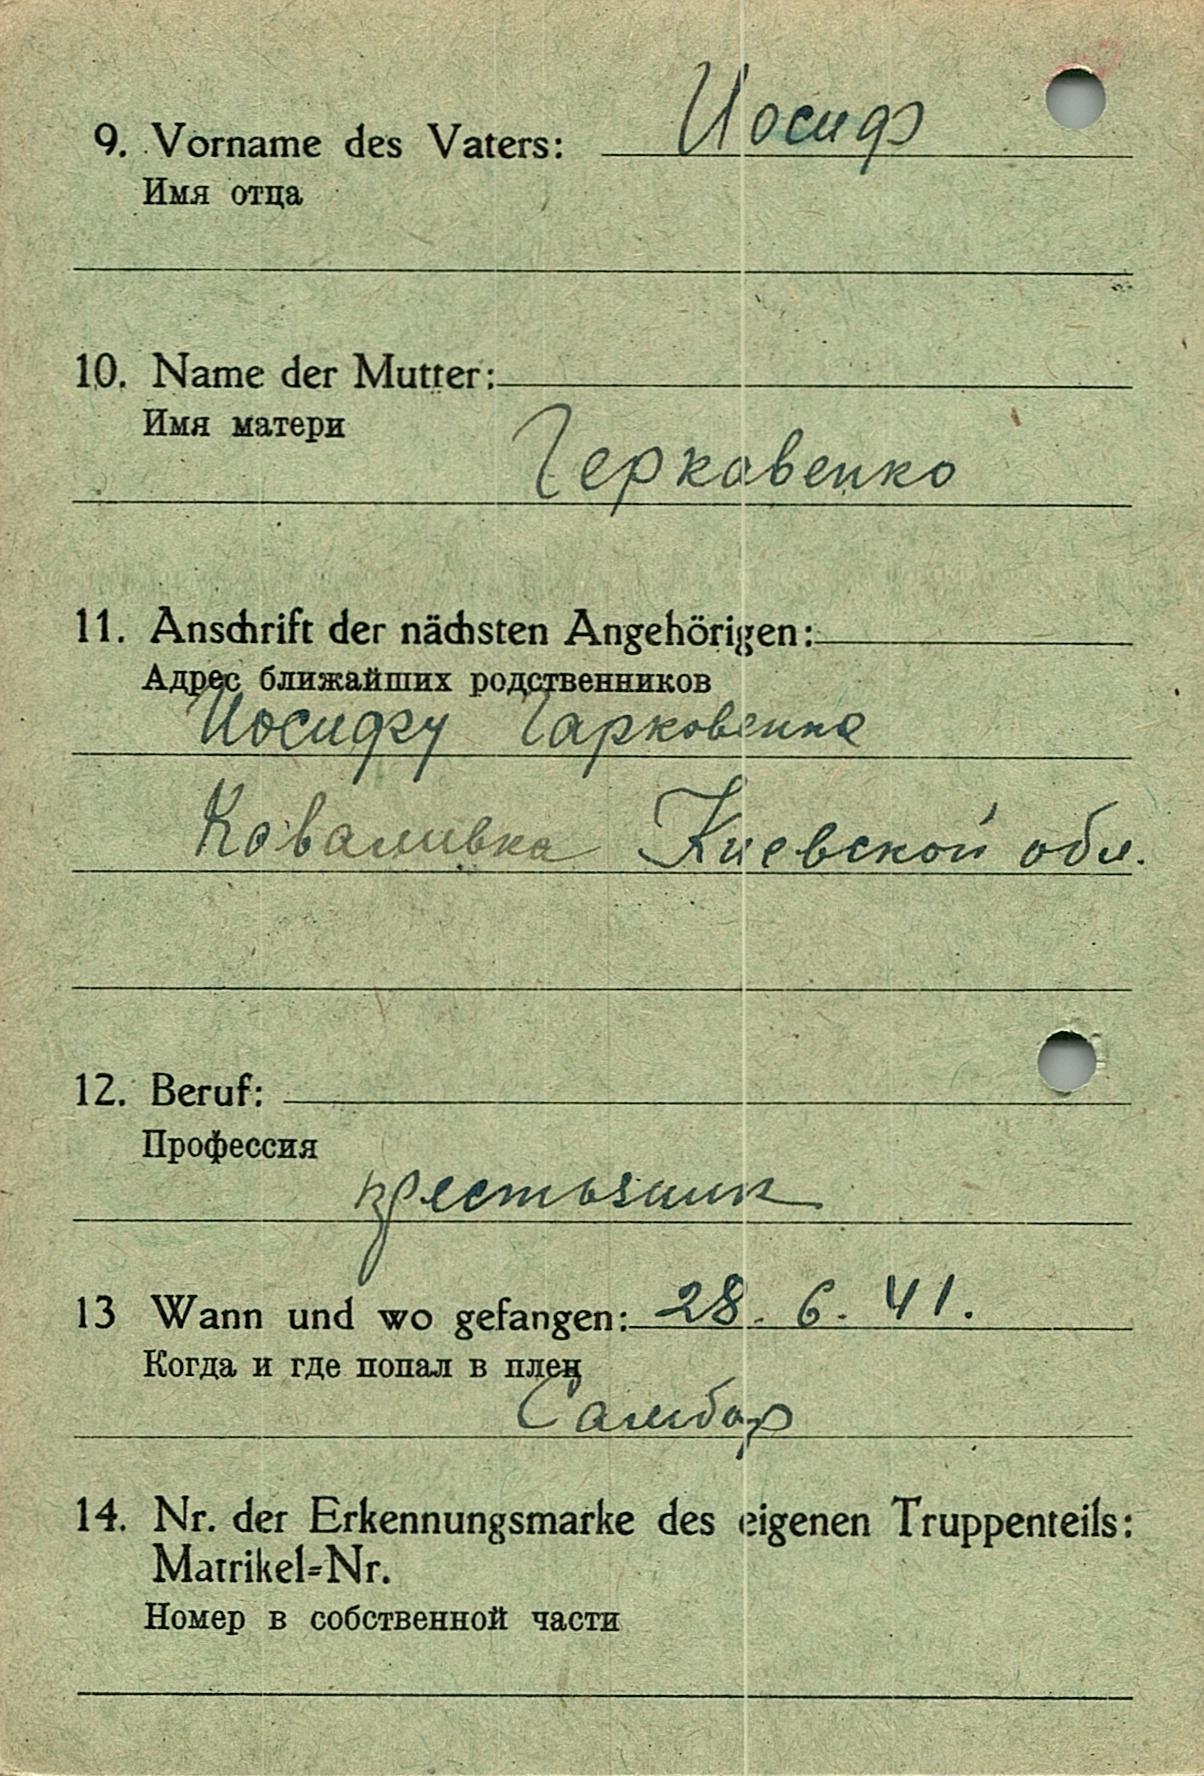 9. Vorname des Vaters: Иосиф
Имя отца
10. Name der Mutter:
Имя матери
Черкавенко
11. Anschrift der nächsten Angehörigen:
Адрес ближайших родственников
Иосифу Чарковенко
Коваливка Киевской обл.
12. Beruf:
Профессия
крестьянин
13 Wann und wo gefangen: 28. 6. 41.
Когда и где попал в плен
Самбор
14. Nr. der Erkennungsmarke des eigenen Truppenteils:
Matrikel=Nr.
Номер в собственной части